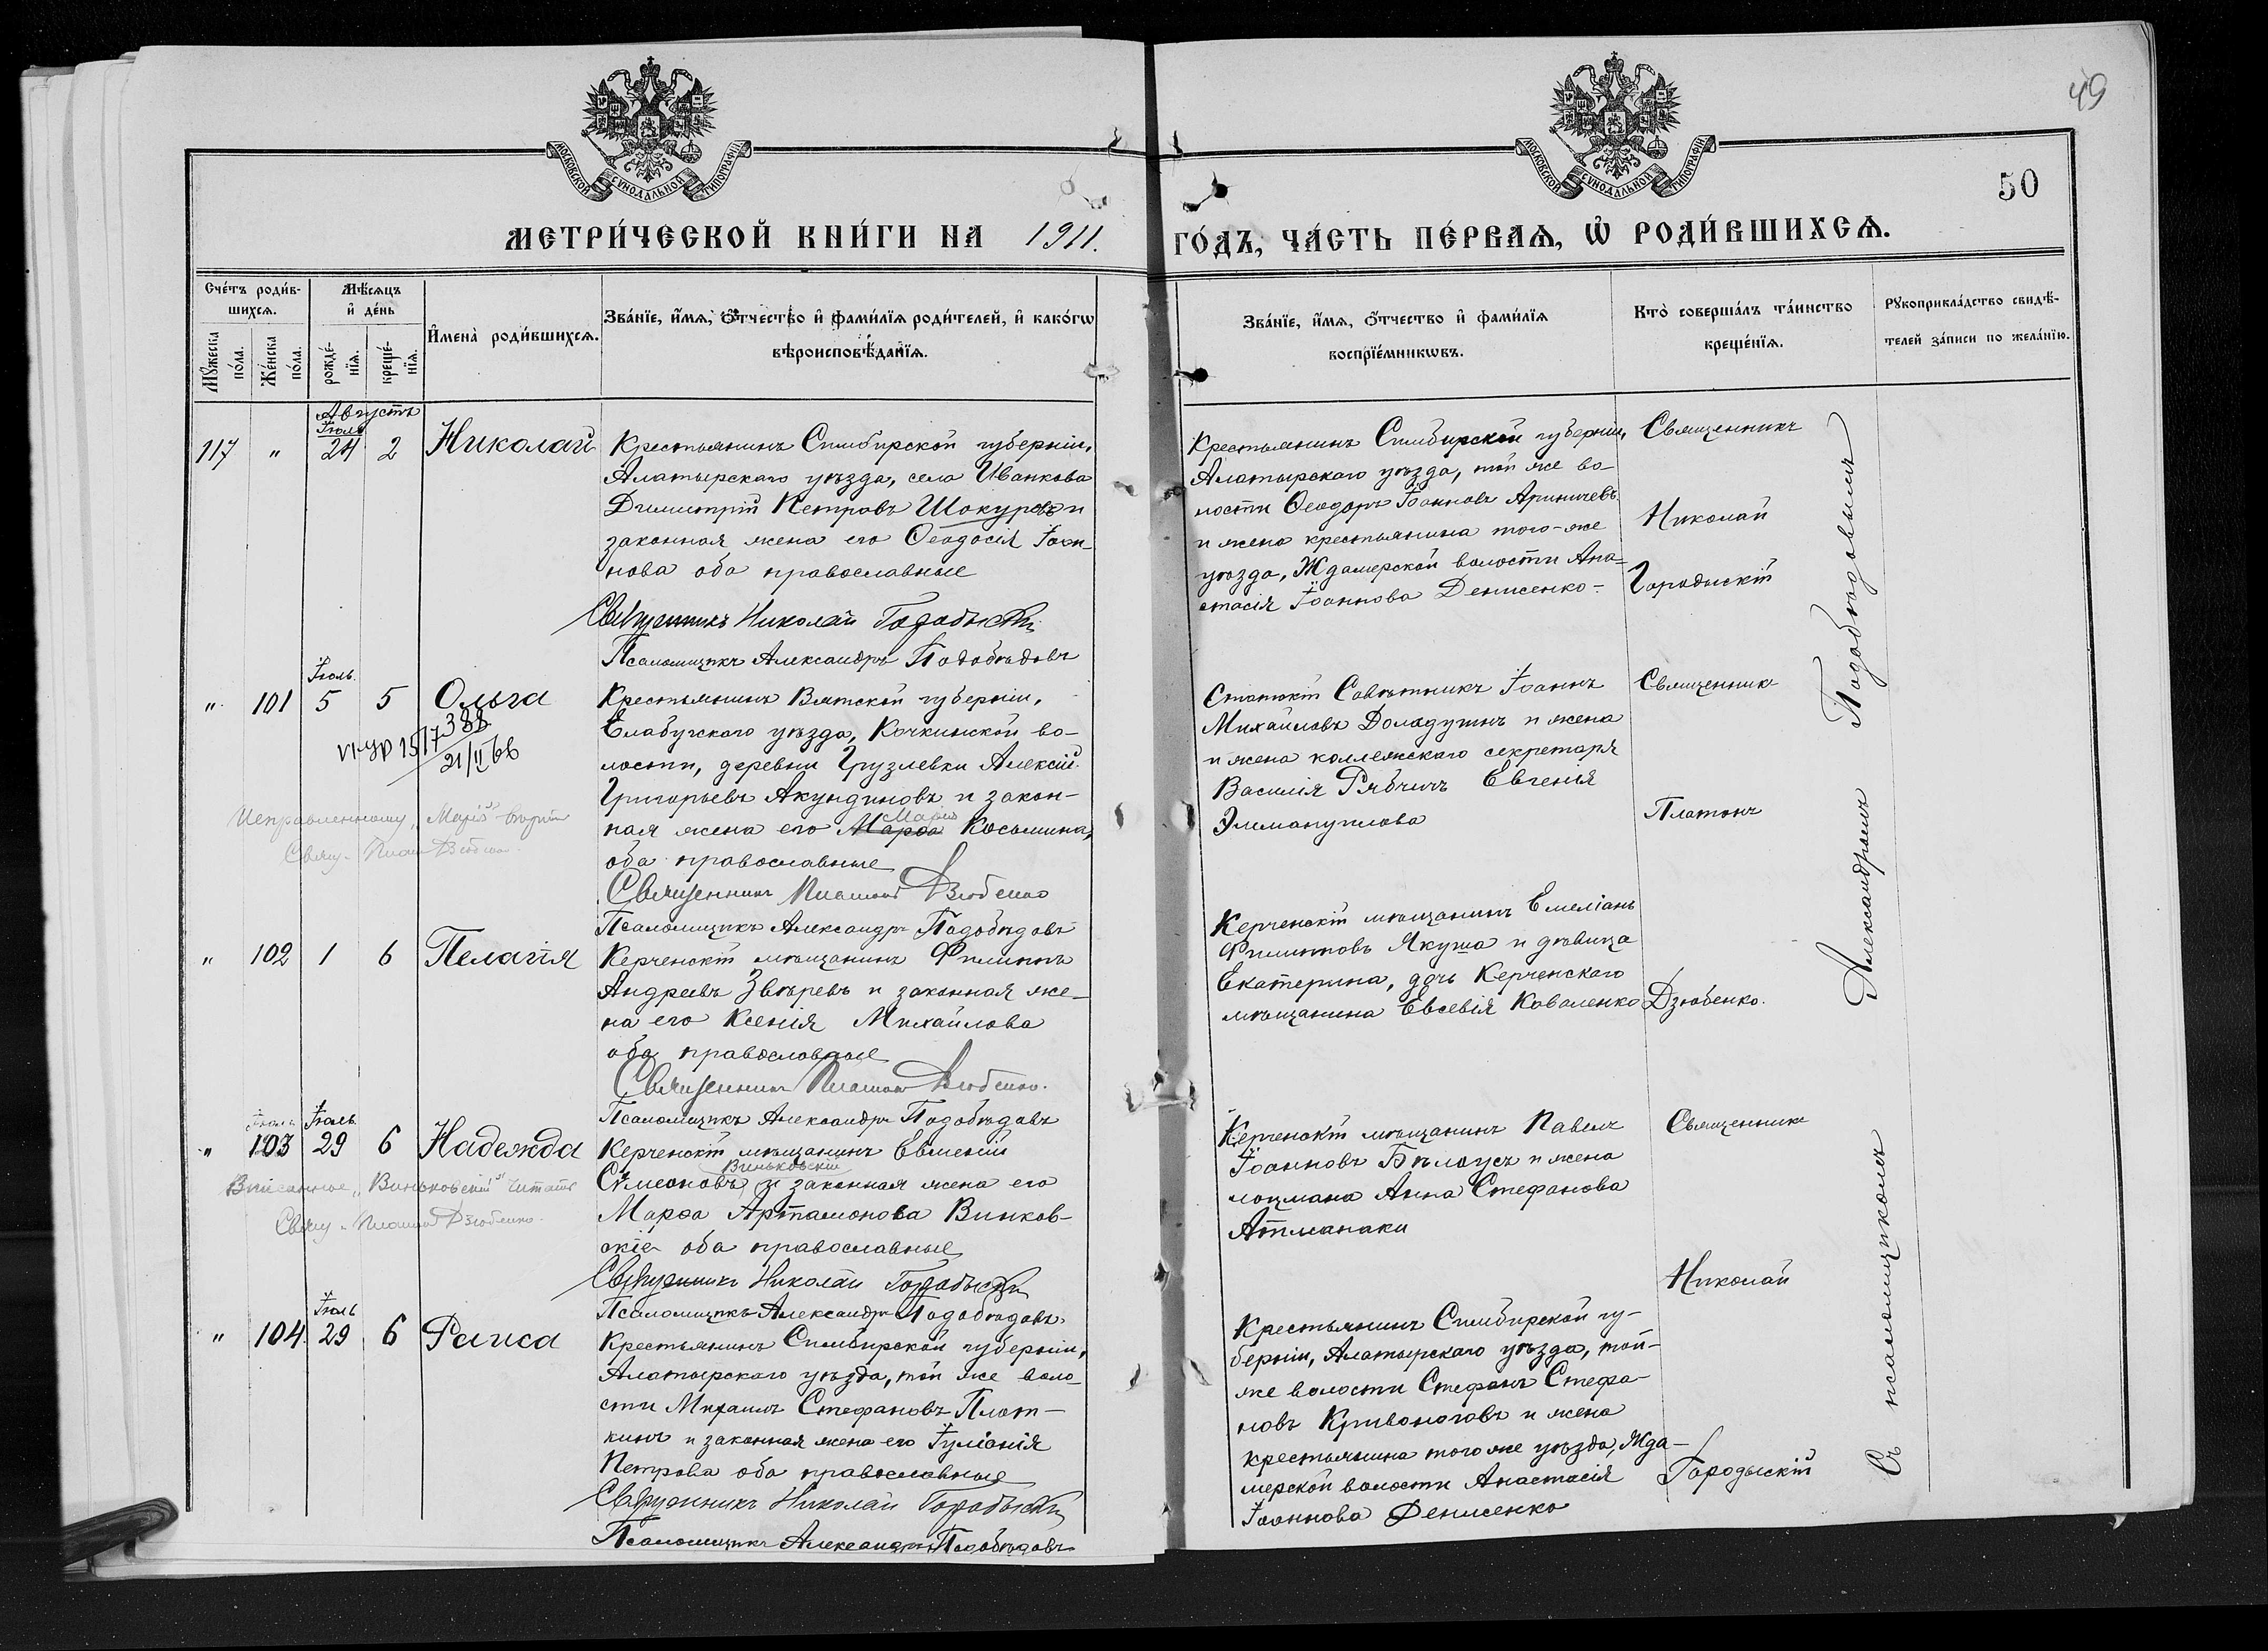 49
50
МОСКОВСКОЙ СѴНОДАЛЬНОЙ ТИПОГРАФІИ
МОСКОВСКОЙ СѴНОДАЛЬНОЙ ТИПОГРАФІИ
МЕТРИ́ЧЕСКОЙ КНИ́ГИ НА 1911. ГО́ДЪ, ЧА́СТЬ ПЕ́РВАѦ, Ѡ҆ РОДИ́ВШИХСѦ.
Счетъ роди́в-
шихсѧ.
Мꙋжеска по́ла.
Же́нска по́ла.
Мѣ́сѧцъ
и҆ де́нь
рожде́-
нїѧ.
креще́-
нїѧ.
И҆мена̀ роди́вшихсѧ.
Зва́нїе, и҆́мѧ, Ѻ҆́тчество и҆ фами́лїѧ роди́телей, и҆ како́гѡ
вѣроисповѣ́данїѧ.
Зва́нїе, и҆́мѧ, ѻ҆́тчество и҆ фами́лїѧ
воспрїе́мникѡвъ.
Кто̀ соверша́лъ та́инство
креще́нїѧ.
Рꙋкоприкла́дство свидѣ́-
телей за́писи по жела́нїю.
Августъ
Іюль
117 " 24 2 Николай
Крестьянинъ Симбирской губерніи,
Алатырскаго уѣзда, села Иванкова
Димитрій Петровъ Шокуровъ и
законная жена его Ѳеодосія Іоан-
нова оба православные
Священникъ Николай Городыскій
Псаломщикъ Александръ Подобѣдовъ
Крестьянинъ Симбирской губерніи,
Алатырскаго уѣзда, той же во-
лости Ѳеодоръ Іоанновъ Ариничевъ
и жена крестьянина того-же
уѣзда, Ждамерской волости Ана-
стасія Іоаннова Денисенко-
Священникъ
Николай
Городыскій
Іюль
" 101 5 5 Ольга
388
21/II 66
Исправленному "Марія" вѣрить
Свящ. Платонъ Дзюбенко
Крестьянинъ Вятской губерніи,
Елабугскаго уѣзда, Кочкинской во-
лости, деревни Грузлевки Алексій
Григорьевъ Акундиновъ и закон-
Марія
ная жена его Марѳа Косьмина,
оба православные
Священникъ Платонъ Дзюбенко
Псаломщикъ Александръ Подобѣдовъ
Статскій Совѣтникъ Іоаннъ
Михайловъ Доладугинъ и жена
и жена коллежскаго секретаря
Василія Рябчичъ Евгенія
Эммануилова
Священникъ
Платонъ
Дзюбенко.
" 102 1 6 Пелагія
Керченскій мѣщанинъ Филиппъ
Андреевъ Звѣревъ и законная же-
на его Ксенія Михайлова
оба православные
Священникъ Платонъ Дзюбенко.
Псаломщикъ Александръ Подобѣдовъ
Керченскій мѣщанинъ Емеліанъ
Филипповъ Якуша и дѣвица
Екатерина, дочь Керченскаго
мѣщанина Евсевія Коваленко
Іюль Іюль
" 103 29 6 Надежда
Вписанное "Виньковскій" читать
Свящ. Платонъ Дзюбенко.
Керченскій мѣщанинъ Евменій
Виньковскій
Симеоновъ и законная жена его
Марѳа Артамонова Винков-
скіе оба православные
Священникъ Николай Городыскій
Псаломщикъ Александръ Подобѣдовъ
Керченскій мѣщанинъ Павелъ
Іоанновъ Бѣлоусъ и жена
лоцмана Анна Стефанова
Атманаки
Священникъ
Николай
Городыскій
Іюль
" 104 29 6 Раиса
Крестьянинъ Симбирской губерніи,
Алатырскаго уѣзда, той же воло-
сти Михаилъ Стефановъ Плат-
кинъ и законная жена его Іуліанія
Петрова оба православные
Священникъ Николай Городыскій
Псаломщикъ Александръ Подобѣдовъ
Крестьянинъ Симбирской гу-
берніи, Алатырскаго уѣзда, той-
же волости Стефанъ Стефа-
новъ Кривоноговъ и жена
крестьянина того же уѣзда, Жда-
мерской волости Анастасія
Іоаннова Денисенко
Съ псаломщикомъ Александромъ Подобѣдовымъ